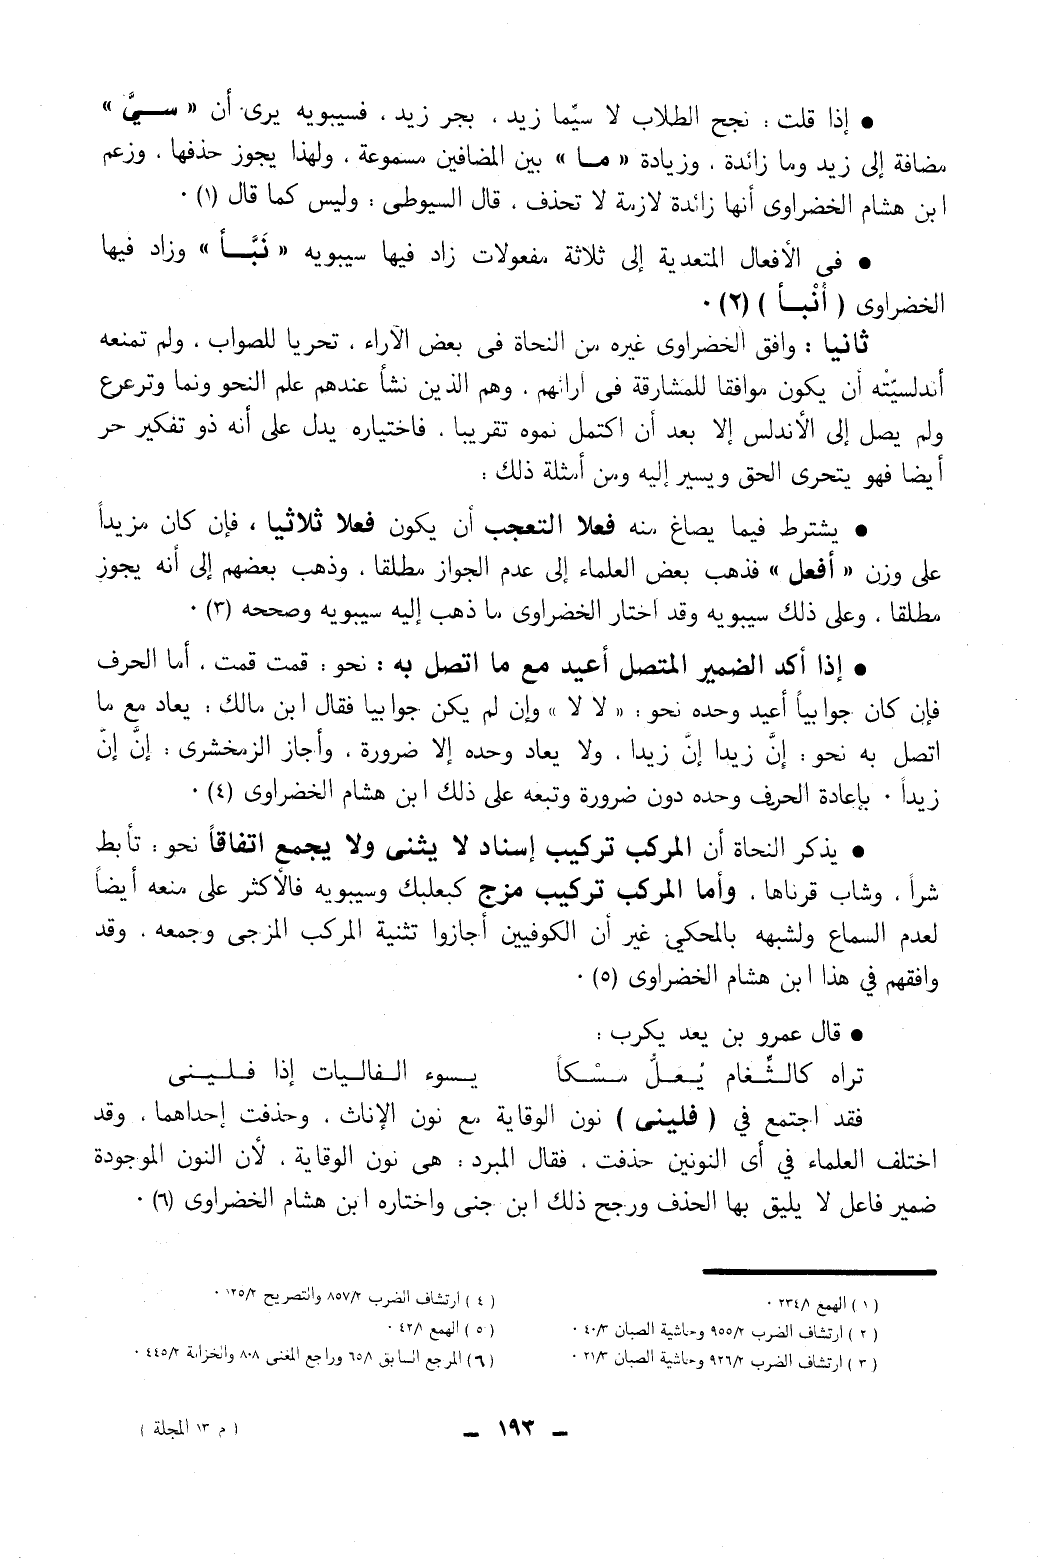 ● إذا قلت : نجح الطلاب لا سيّما زيد ، بجر زيد ، فسيبويه يرى أن « ســيَّ »
مضافة إلى زيد وما زائدة ، وزيادة « مـا » بين المضافين مسموعة ، ولهذا يجوز حذفها ، وزعم
ابن هشام الخضراوى أنها زائدة لازمة لا تحذف ، قال السيوطى : وليس كما قال (١) ٠
● فى الأفعال المتعدية إلى ثلاثة مفعولات زاد فيها سيبويه « نَبَّـأ » وزاد فيها
الخضراوى ( أنْبـأ ) (٢) ٠
ثانيا : وافق الخضراوى غيره من النحاة فى بعض الآراء ، تحريا للصواب ، ولم تمنعه
أندلسيّتْه أن يكون موافقا للمشارقة فى ارائهم ، وهم الذين نشأ عندهم علم النحو ونما وترعرع
ولم يصل إلى الأندلس إلا بعد أن اكتمل نموه تقريبا ، فاختياره يدل على أنه ذو تفكير حر
أيضا فهو يتحرى الحق ويسير إليه ومن أمثلة ذلك :
● يشترط فيما يصاغ منه فعلا التعجب أن يكون فعلا ثلاثيا ، فإن كان مزيداً
على وزن « أفعل » فذهب بعض العلماء إلى عدم الجواز مطلقا ، وذهب بعضهم إلى أنه يجوز
مطلقا ، وعلى ذلك سيبويه وقد اختار الخضراوى ما ذهب إليه سيبويه وصححه (٣) ٠
● إذا أكد الضمير المتصل أعيد مع ما اتصل به : نحو : قمت قمت ، أما الحرف
فإن كان جوابياً أعيد وحده نحو : « لا لا » وإن لم يكن جوابيا فقال ابن مالك : يعاد مع ما
اتصل به نحو : إنَّ زيدا إنَّ زيدا ، ولا يعاد وحده إلا ضرورة ، وأجاز الزمخشرى : إنَّ إنّ
زيداً ٠ بإعادة الحرف وحده دون ضرورة وتبعه على ذلك ابن هشام الخضراوى (٤) ٠
● يذكر النحاة أن المركب تركيب إسناد لا يثنى ولا يجمع اتفاقاً نحو : تأبط
شراً ، وشاب قرناها ، وأما المركب تركيب مزج كبعلبك وسيبويه فالأكثر على منعه أيضاً
لعدم السماع ولشبهه بالمحكي غير أن الكوفيين أجازوا تثنية المركب المزجى وجمعه ، وقد
وافقهم في هذا ابن هشام الخضراوى (٥) ٠
● قال عمرو بن يعد يكرب :
تراه كالـثَّغام يُعـلُّ مسْـكاً يـسوء الـفـاليـات إذا فـلـيـنى
فقد اجتمع في ( فلينى ) نون الوقاية مع نون الإناث ، وحذفت إحداهما ، وقد
اختلف العلماء في أى النونين حذفت ، فقال المبرد : هى نون الوقاية ، لأن النون الموجودة
ضمير فاعل لا يليق بها الحذف ورجح ذلك ابن جنى واختاره ابن هشام الخضراوى (٦) ٠
(١) الهمع ٢٣٤/١ ٠
(٢) ارتشاف الضرب ٩٥٥/٢ وحاشية الصبان ٤٠/٣ ٠
(٣) ارتشاف الضرب ٩٢٦/٢ وحاشية الصبان ٢١/٣ ٠
(٤) ارتشاف الضرب ٨٥٧/٢ والتصريح ١٢٥/٢ ٠
(٥) الهمع ٤٢/١ ٠
(٦) المرجع السابق ٦٥/١ وراجع المغنى ٨٠٨ والخزانة ٤٤٥/٢ ٠
ـ ١٩٣ ـ
( م ١٣ المجلة )